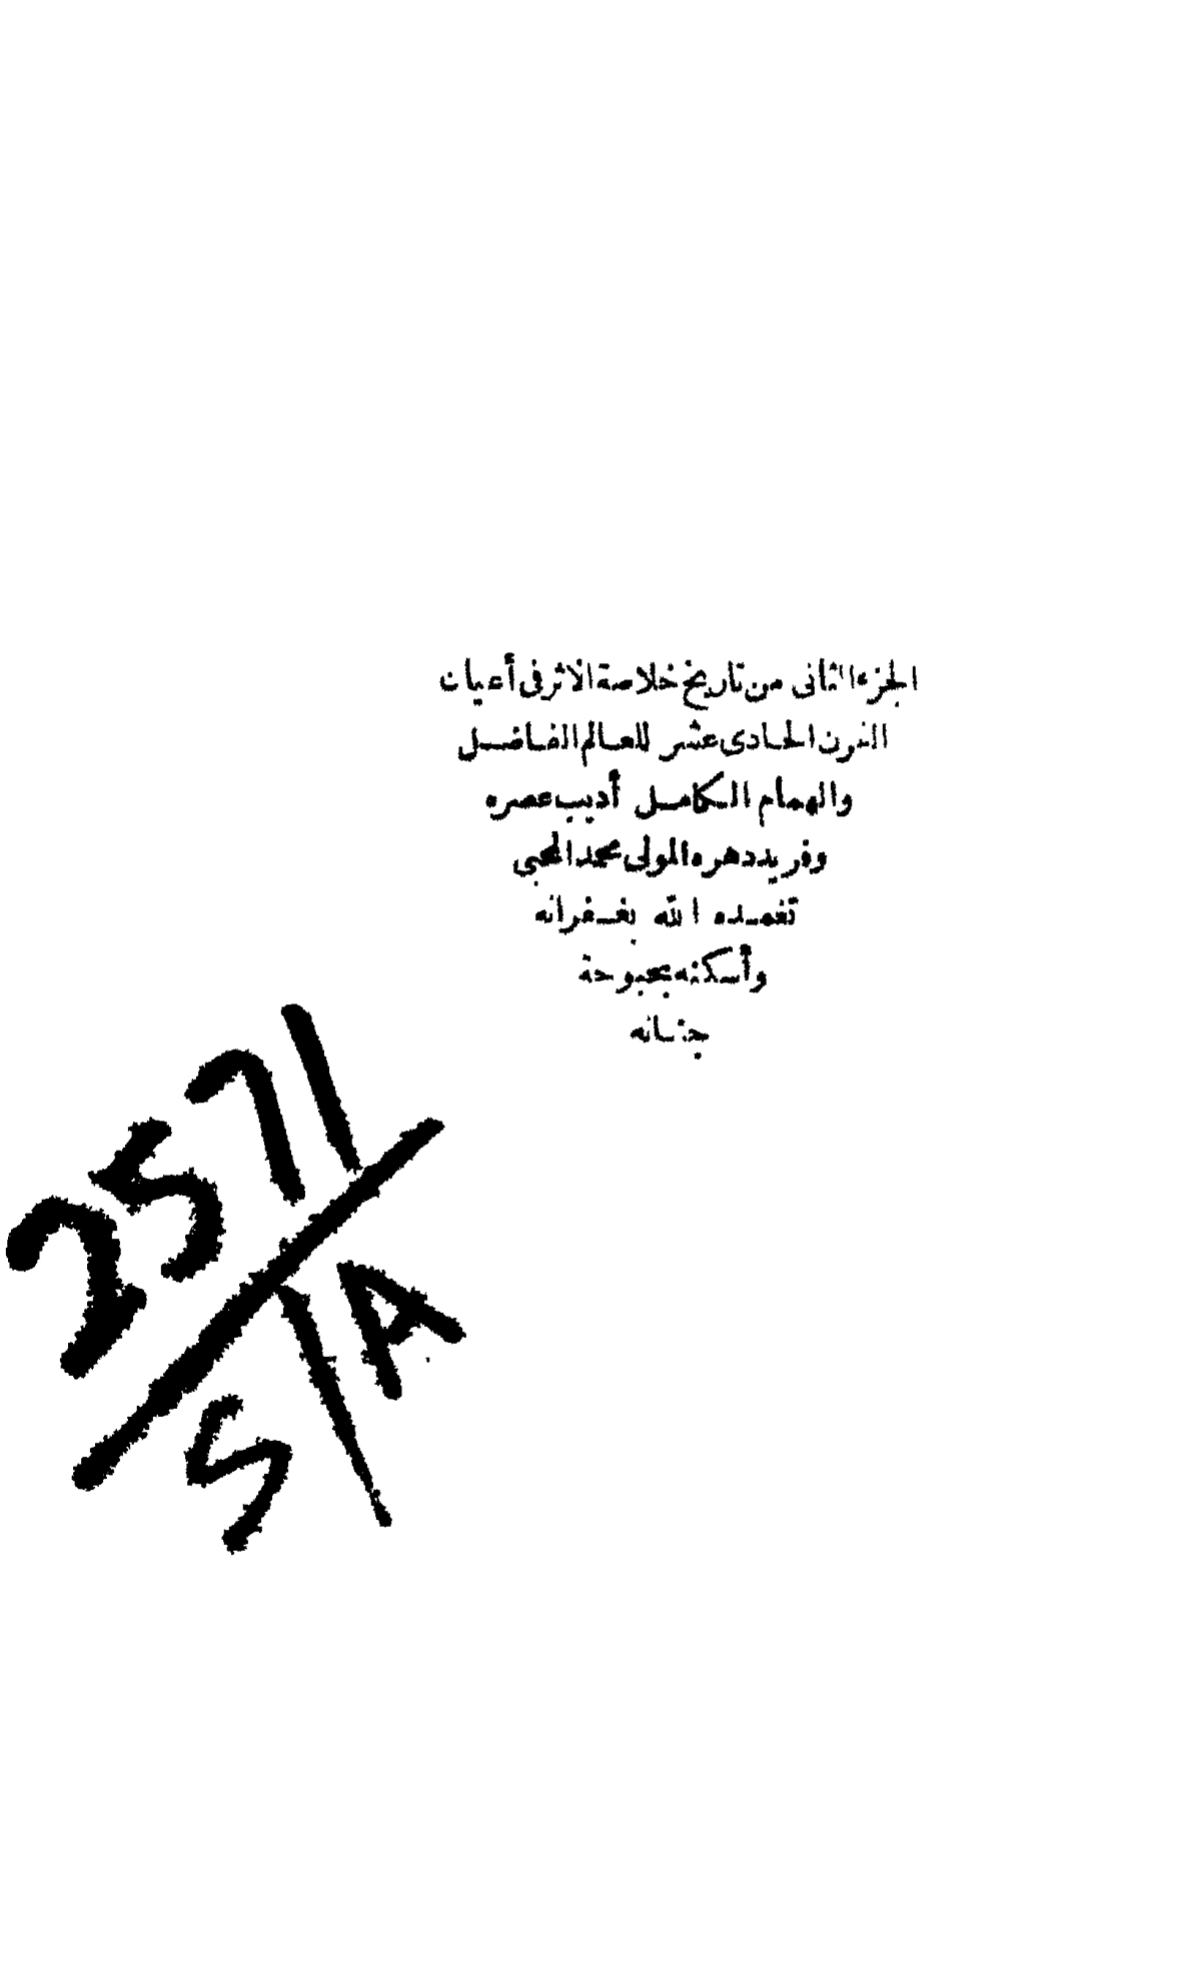 الجزء الثانى من تاريخ خلاصة الاثر فى أعيان
القرن الحادى عشر للعالم الفاضل
والهمام الكامل أديب عصره
وفريد دهره المولى محمد المحبى
تغمده الله بغفرانه
وأسكنه بحبوحة
جنانه
2571
51A